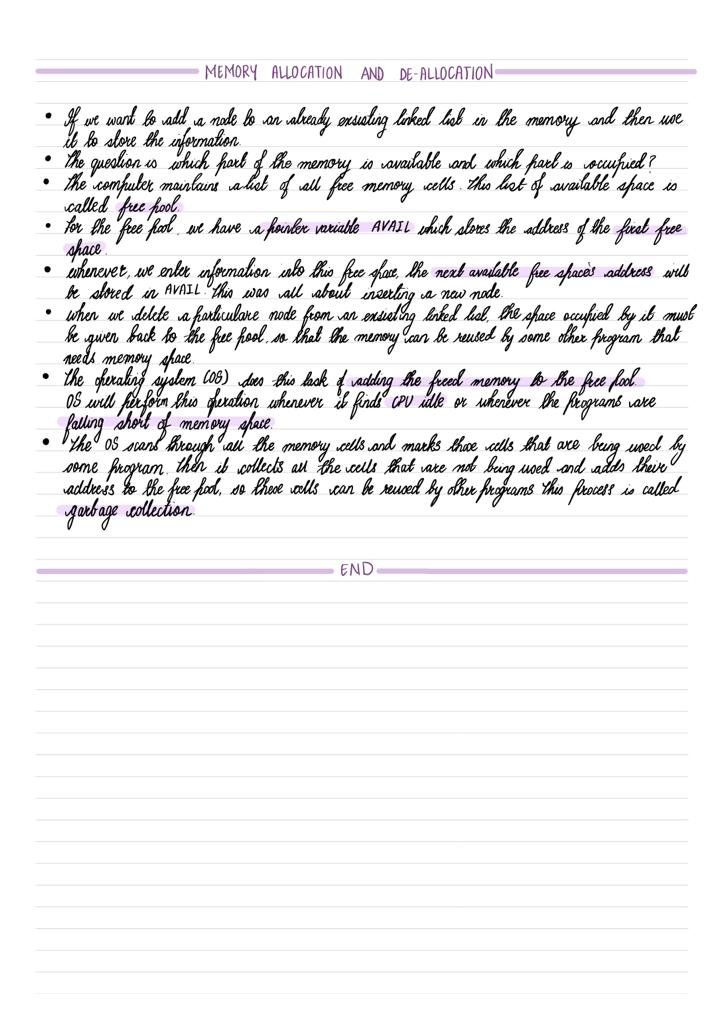 MEMORY ALLOCATION AND DE-ALLOCATION
• If we want to add a node to an already exsisting linked list in the memory and then use
it to store the information.
• The question is which part of the memory is available and which part is occupied?
• The computer maintains a list of all free memory cells. This list of available space is
called free pool.
• For the free pool, we have a pointer variable AVAIL which stores the address of the first free
space.
• whenever, we enter information into this free space, the next available free space's address will
be stored in AVAIL. This was all about inserting a new node.
• when we delete a particulare node from an exsisting linked list, the space occupied by it must
be given back to the free pool, so that the memory can be reused by some other program that
needs memory space.
• The operating system (OS) does this task of adding the freed memory to the free pool.
OS will perform this operation whenever it finds CPU idle or whenever the programs are
falling short of memory space.
• The OS scans through all the memory cells and marks those cells that are being used by
some program. Then it collects all the cells that are not being used and adds their
address to the free pool, so these cells can be reused by other programs. This process is called
garbage collection.
END